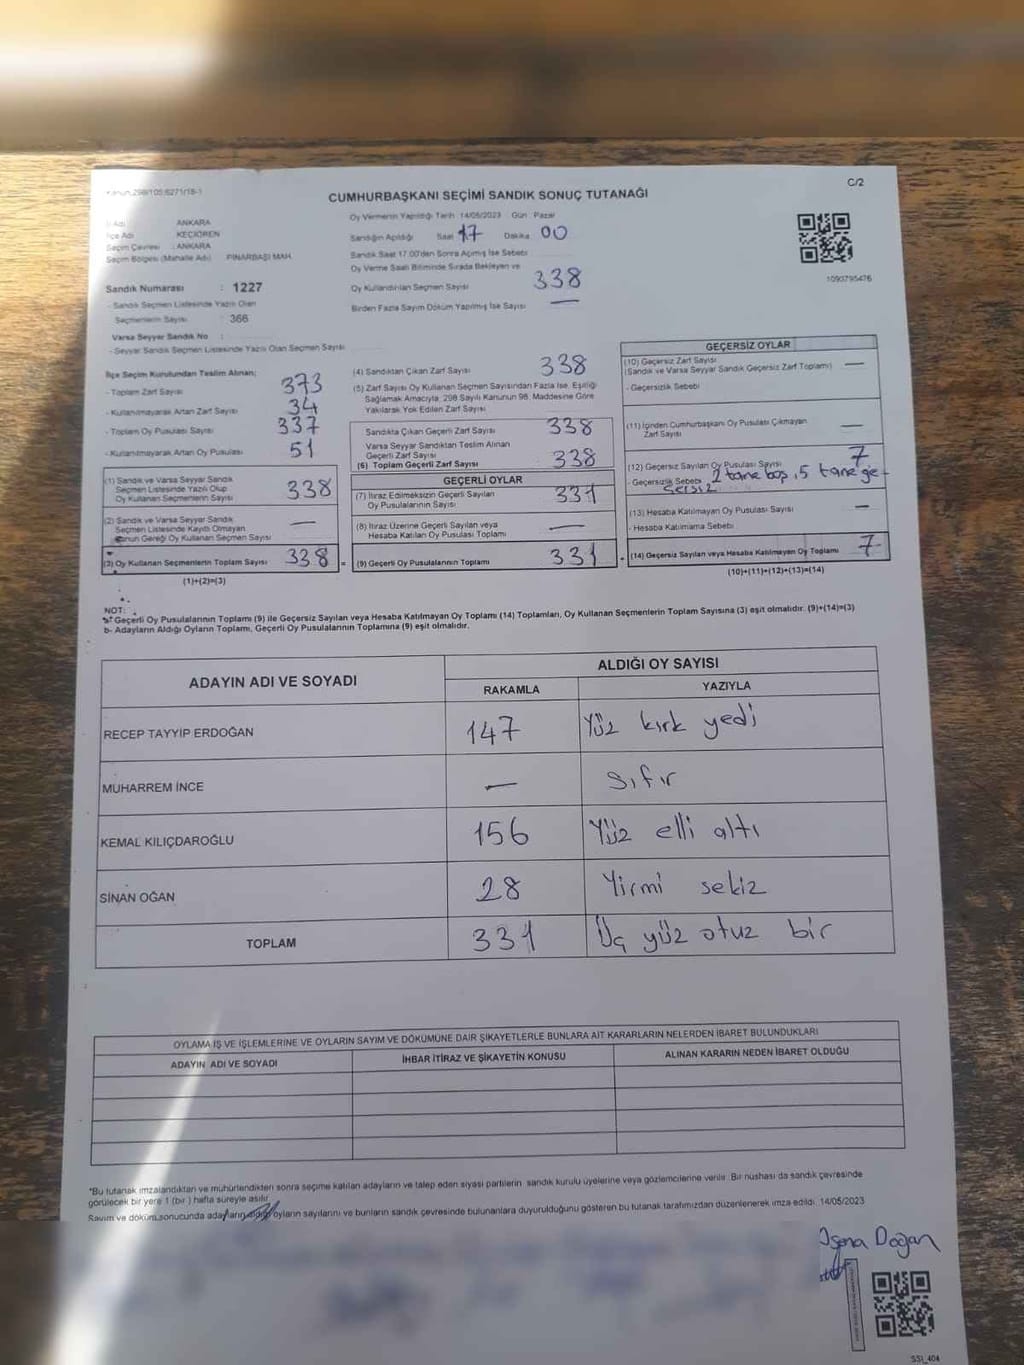 Kanun:298/105;6271/18-1
C/2
CUMHURBAŞKANI SEÇİMİ SANDIK SONUÇ TUTANAĞI
İl Adı : ANKARA
İlçe Adı : KEÇİÖREN
Seçim Çevresi : ANKARA
Seçim Bölgesi (Mahalle Adı) : PINARBAŞI MAH.
Sandık Numarası : 1227
- Sandık Seçmen Listesinde Yazılı Olan
Seçmenlerin Sayısı : 366
Varsa Seyyar Sandık No :
- Seyyar Sandık Seçmen Listesinde Yazılı Olan Seçmen Sayısı
Oy Vermenin Yapıldığı Tarih 14/05/2023 Gün Pazar
Sandığın Açıldığı Saat 17 Dakika 00
Sandık Saat 17.00'den Sonra Açılmış İse Sebebi
Oy Verme Saati Bitiminde Sırada Bekleyen ve
Oy Kullandırılan Seçmen Sayısı 338
Birden Fazla Sayım Döküm Yapılmış İse Sayısı —
1090795476
İlçe Seçim Kurulundan Teslim Alınan;
- Toplam Zarf Sayısı 373
- Kullanılmayarak Artan Zarf Sayısı 34
- Toplam Oy Pusulası Sayısı 337
- Kullanılmayarak Artan Oy Pusulası 51
(1) Sandık ve Varsa Seyyar Sandık
Seçmen Listesinde Yazılı Olup
Oy Kullanan Seçmenlerin Sayısı 338
(2) Sandık ve Varsa Seyyar Sandık
Seçmen Listesinde Kayıtlı Olmayan
Kanun Gereği Oy Kullanan Seçmen Sayısı —
(3) Oy Kullanan Seçmenlerin Toplam Sayısı 338 =
(1)+(2)=(3)
(4) Sandıktan Çıkan Zarf Sayısı 338
(5) Zarf Sayısı Oy Kullanan Seçmen Sayısından Fazla İse, Eşitliği
Sağlamak Amacıyla, 298 Sayılı Kanunun 98. Maddesine Göre
Yakılarak Yok Edilen Zarf Sayısı
Sandıkta Çıkan Geçerli Zarf Sayısı 338
Varsa Seyyar Sandıktan Teslim Alınan
Geçerli Zarf Sayısı
(6) Toplam Geçerli Zarf Sayısı 338
GEÇERLİ OYLAR
(7) İtiraz Edilmeksizin Geçerli Sayılan
Oy Pusulalarının Sayısı 331
(8) İtiraz Üzerine Geçerli Sayılan veya
Hesaba Katılan Oy Pusulası Toplamı —
(9) Geçerli Oy Pusulalarının Toplamı 331
GEÇERSİZ OYLAR
(10) Geçersiz Zarf Sayısı
(Sandık ve Varsa Seyyar Sandık Geçersiz Zarf Toplamı) —
- Geçersizlik Sebebi
(11) İçinden Cumhurbaşkanı Oy Pusulası Çıkmayan
Zarf Sayısı —
(12) Geçersiz Sayılan Oy Pusulası Sayısı 7
- Geçersizlik Sebebi 2 tane boş, 5 tane ge-
çersiz
(13) Hesaba Katılmayan Oy Pusulası Sayısı —
- Hesaba Katılmama Sebebi
(14) Geçersiz Sayılan veya Hesaba Katılmayan Oy Toplamı 7
(10)+(11)+(12)+(13)=(14)
NOT:
a- Geçerli Oy Pusulalarının Toplamı (9) ile Geçersiz Sayılan veya Hesaba Katılmayan Oy Toplamı (14) Toplamları, Oy Kullanan Seçmenlerin Toplam Sayısına (3) eşit olmalıdır. (9)+(14)=(3)
b- Adayların Aldığı Oyların Toplamı, Geçerli Oy Pusulalarının Toplamına (9) eşit olmalıdır.
ADAYIN ADI VE SOYADI
ALDIĞI OY SAYISI
RAKAMLA YAZIYLA
RECEP TAYYİP ERDOĞAN 147 Yüz kırk yedi
MUHARREM İNCE — sıfır
KEMAL KILIÇDAROĞLU 156 Yüz elli altı
SİNAN OĞAN 28 Yirmi sekiz
TOPLAM 331 Üç yüz otuz bir
OYLAMA İŞ VE İŞLEMLERİNE VE OYLARIN SAYIM VE DÖKÜMÜNE DAİR ŞİKAYETLERLE BUNLARA AİT KARARLARIN NELERDEN İBARET BULUNDUKLARI
ADAYIN ADI VE SOYADI İHBAR İTİRAZ VE ŞİKAYETİN KONUSU ALINAN KARARIN NEDEN İBARET OLDUĞU
*Bu tutanak imzalandıktan ve mühürlendikten sonra seçime katılan adayların ve talep eden siyasi partilerin sandık kurulu üyelerine veya gözlemcilerine verilir. Bir nüshası da sandık çevresinde
görülecek bir yere 1 (bir ) hafta süreyle asılır.
Sayım ve döküm sonucunda adayların aldığı oyların sayılarını ve bunların sandık çevresinde bulunanlara duyurulduğunu gösteren bu tutanak tarafımızdan düzenlenerek imza edildi. 14/05/2023
Doğan
SSİ_404